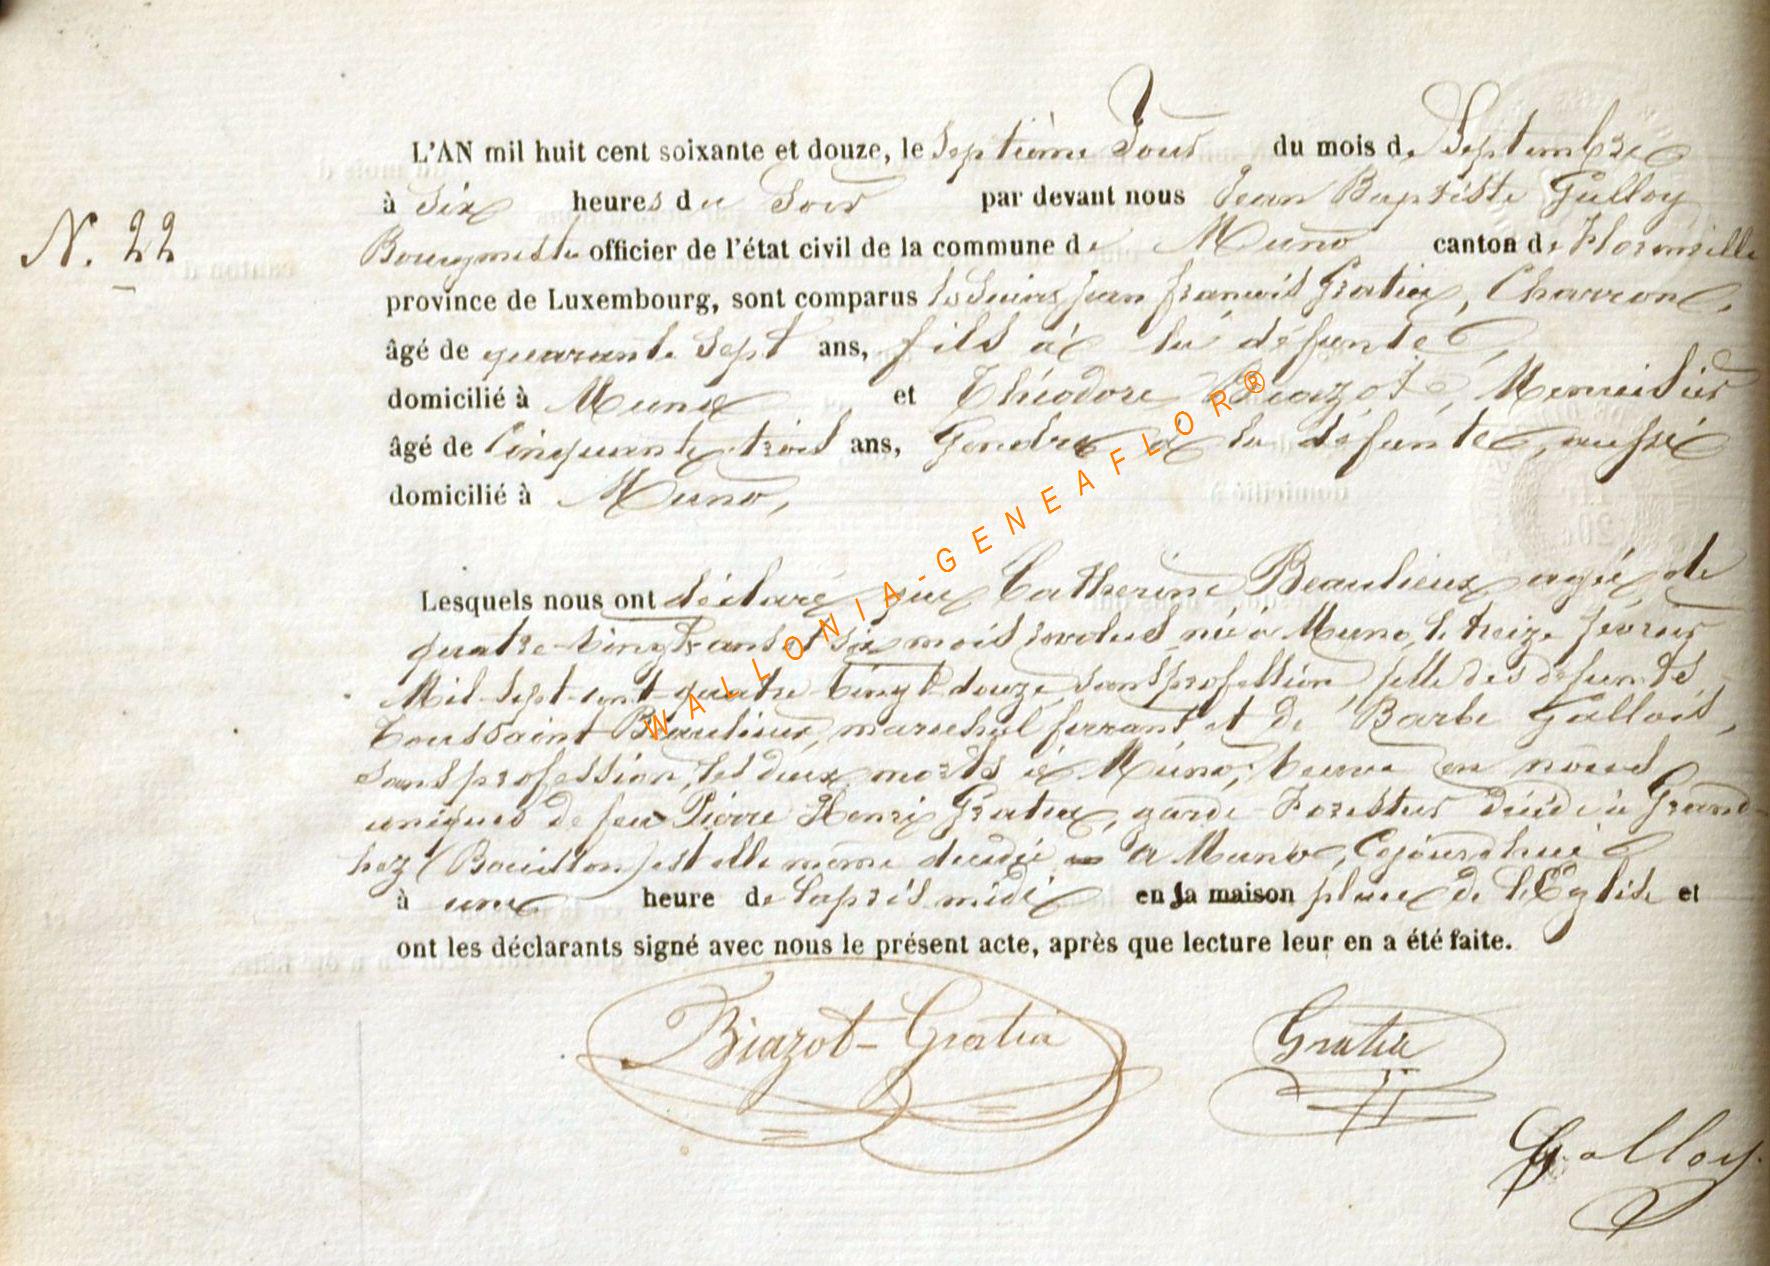 L'AN mil huit cent soixante et douze, le Septième Jour du mois de Septembre
à Six heures du Soir par devant nous Jean Baptiste Gulloy
N. 22
Bourgmestre officier de l'état civil de la commune de Muno canton de Florenville
province de Luxembourg, sont comparus les Sieurs Jean François Gratia, Charron,
âgé de quarante Sept ans, fils à la défunte,
domicilié à Muno et Théodore Biazot, Menuisier
âgé de Cinquante trois ans, Gendre à la défunte, aussi
domicilié à Muno,
Lesquels nous ont déclaré que Catherine Beaulieux agée de
quatre-vingt ans et six mois révolus, née à Muno, le treize février
Mil Sept cent quatre vingt douze, sans profession, fille des défunts
Toussaint Beaulieux, marechal ferrant et de Barbe Gallois,
sans profession, les deux morts à Muno, veuve en noces
uniques de feu Pierre Henri Gratia, garde-Forestier décédé à Grand-
hez (Bouillon) est elle même décédée à Muno, Cejourd'hui
à une heure de l'après midi en sa maison place de l'Eglise et
ont les déclarants signé avec nous le présent acte, après que lecture leur en a été faite.
Biazot-Gratia
Gratia
Gulloy
WALLONIA-GENEAFLOR®